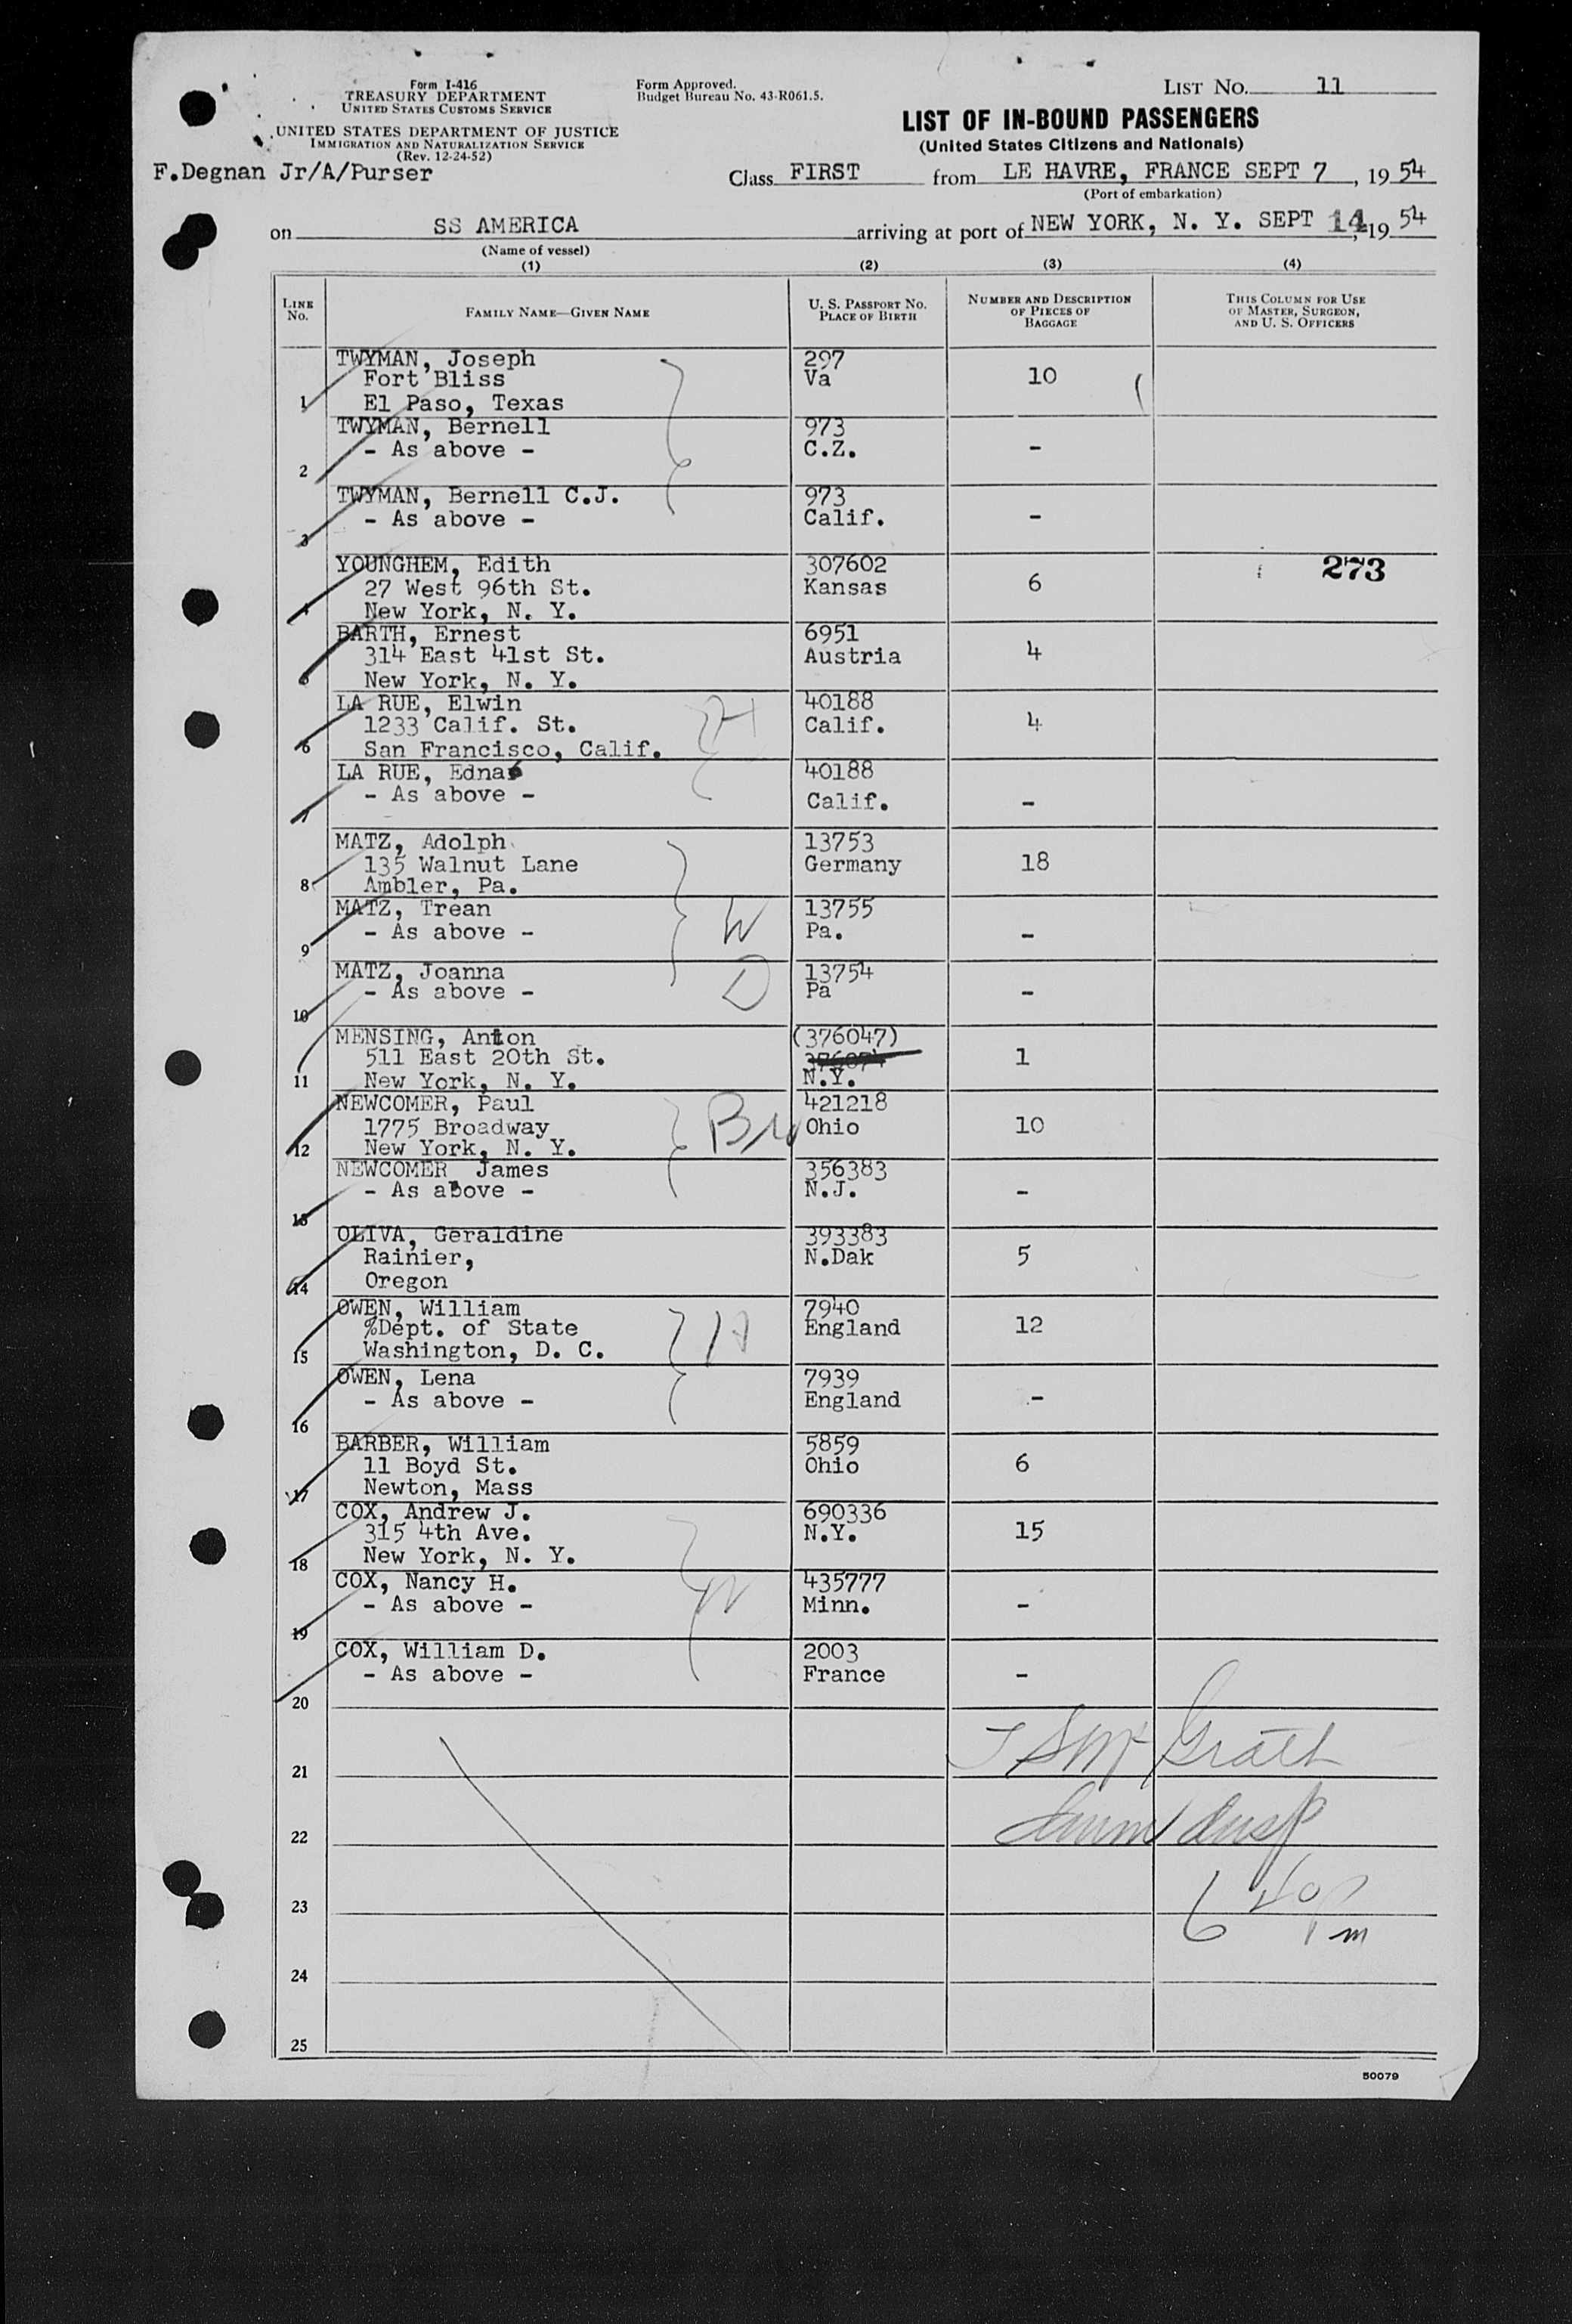 Form I-416
TREASURY DEPARTMENT
UNITED STATES CUSTOMS SERVICE
UNITED STATES DEPARTMENT OF JUSTICE
IMMIGRATION AND NATURALIZATION SERVICE
(Rev. 12-24-52)
Form Approved.
Budget Bureau No. 43-R061.5.
LIST NO. 11
LIST OF IN-BOUND PASSENGERS
(United States Citizens and Nationals)
F.Degnan Jr/A/Purser
Class FIRST from LE HAVRE, FRANCE SEPT 7, 19 54
(Port of embarkation)
on SS AMERICA arriving at port of NEW YORK, N. Y. SEPT 14, 19 54
(Name of vessel)
(1) (2) (3) (4)
LINE NO.
FAMILY NAME—GIVEN NAME
U. S. PASSPORT NO.
PLACE OF BIRTH
NUMBER AND DESCRIPTION
OF PIECES OF
BAGGAGE
THIS COLUMN FOR USE
OF MASTER, SURGEON,
AND U. S. OFFICERS
TWYMAN, Joseph 297
Fort Bliss Va 10
1 El Paso, Texas
TWYMAN, Bernell 973
- As above - C.Z. -
2
TWYMAN, Bernell C.J. 973
- As above - Calif. -
3
YOUNGHEM, Edith 307602 273
27 West 96th St. Kansas 6
4 New York, N. Y.
BARTH, Ernest 6951
314 East 41st St. Austria 4
5 New York, N. Y.
LA RUE, Elwin 40188
1233 Calif. St. Calif. 4
6 San Francisco, Calif.
H
LA RUE, Edna 40188
- As above - Calif. -
7
MATZ, Adolph 13753
135 Walnut Lane Germany 18
8 Ambler, Pa.
MATZ, Trean 13755
- As above - W Pa. -
9
MATZ, Joanna D 13754
- As above - Pa -
10
MENSING, Anton (376047)
511 East 20th St. 376074 1
11 New York, N. Y. N.Y.
NEWCOMER, Paul 421218
1775 Broadway Ohio 10
12 New York, N. Y.
NEWCOMER James 356383
- As above - N.J. -
13
OLIVA, Geraldine 393383
Rainier, N.Dak 5
14 Oregon
OWEN, William 7940
%Dept. of State England 12
15 Washington, D. C.
OWEN, Lena 7939
- As above - England -
16
BARBER, William 5859
11 Boyd St. Ohio 6
17 Newton, Mass
COX, Andrew J. 690336
315 4th Ave. N.Y. 15
18 New York, N. Y.
COX, Nancy H. 435777
- As above - W Minn. -
19
COX, William D. 2003
- As above - France -
20
21 McGrath
22 Immi Insp
23 6 40 pm
24
25
50079